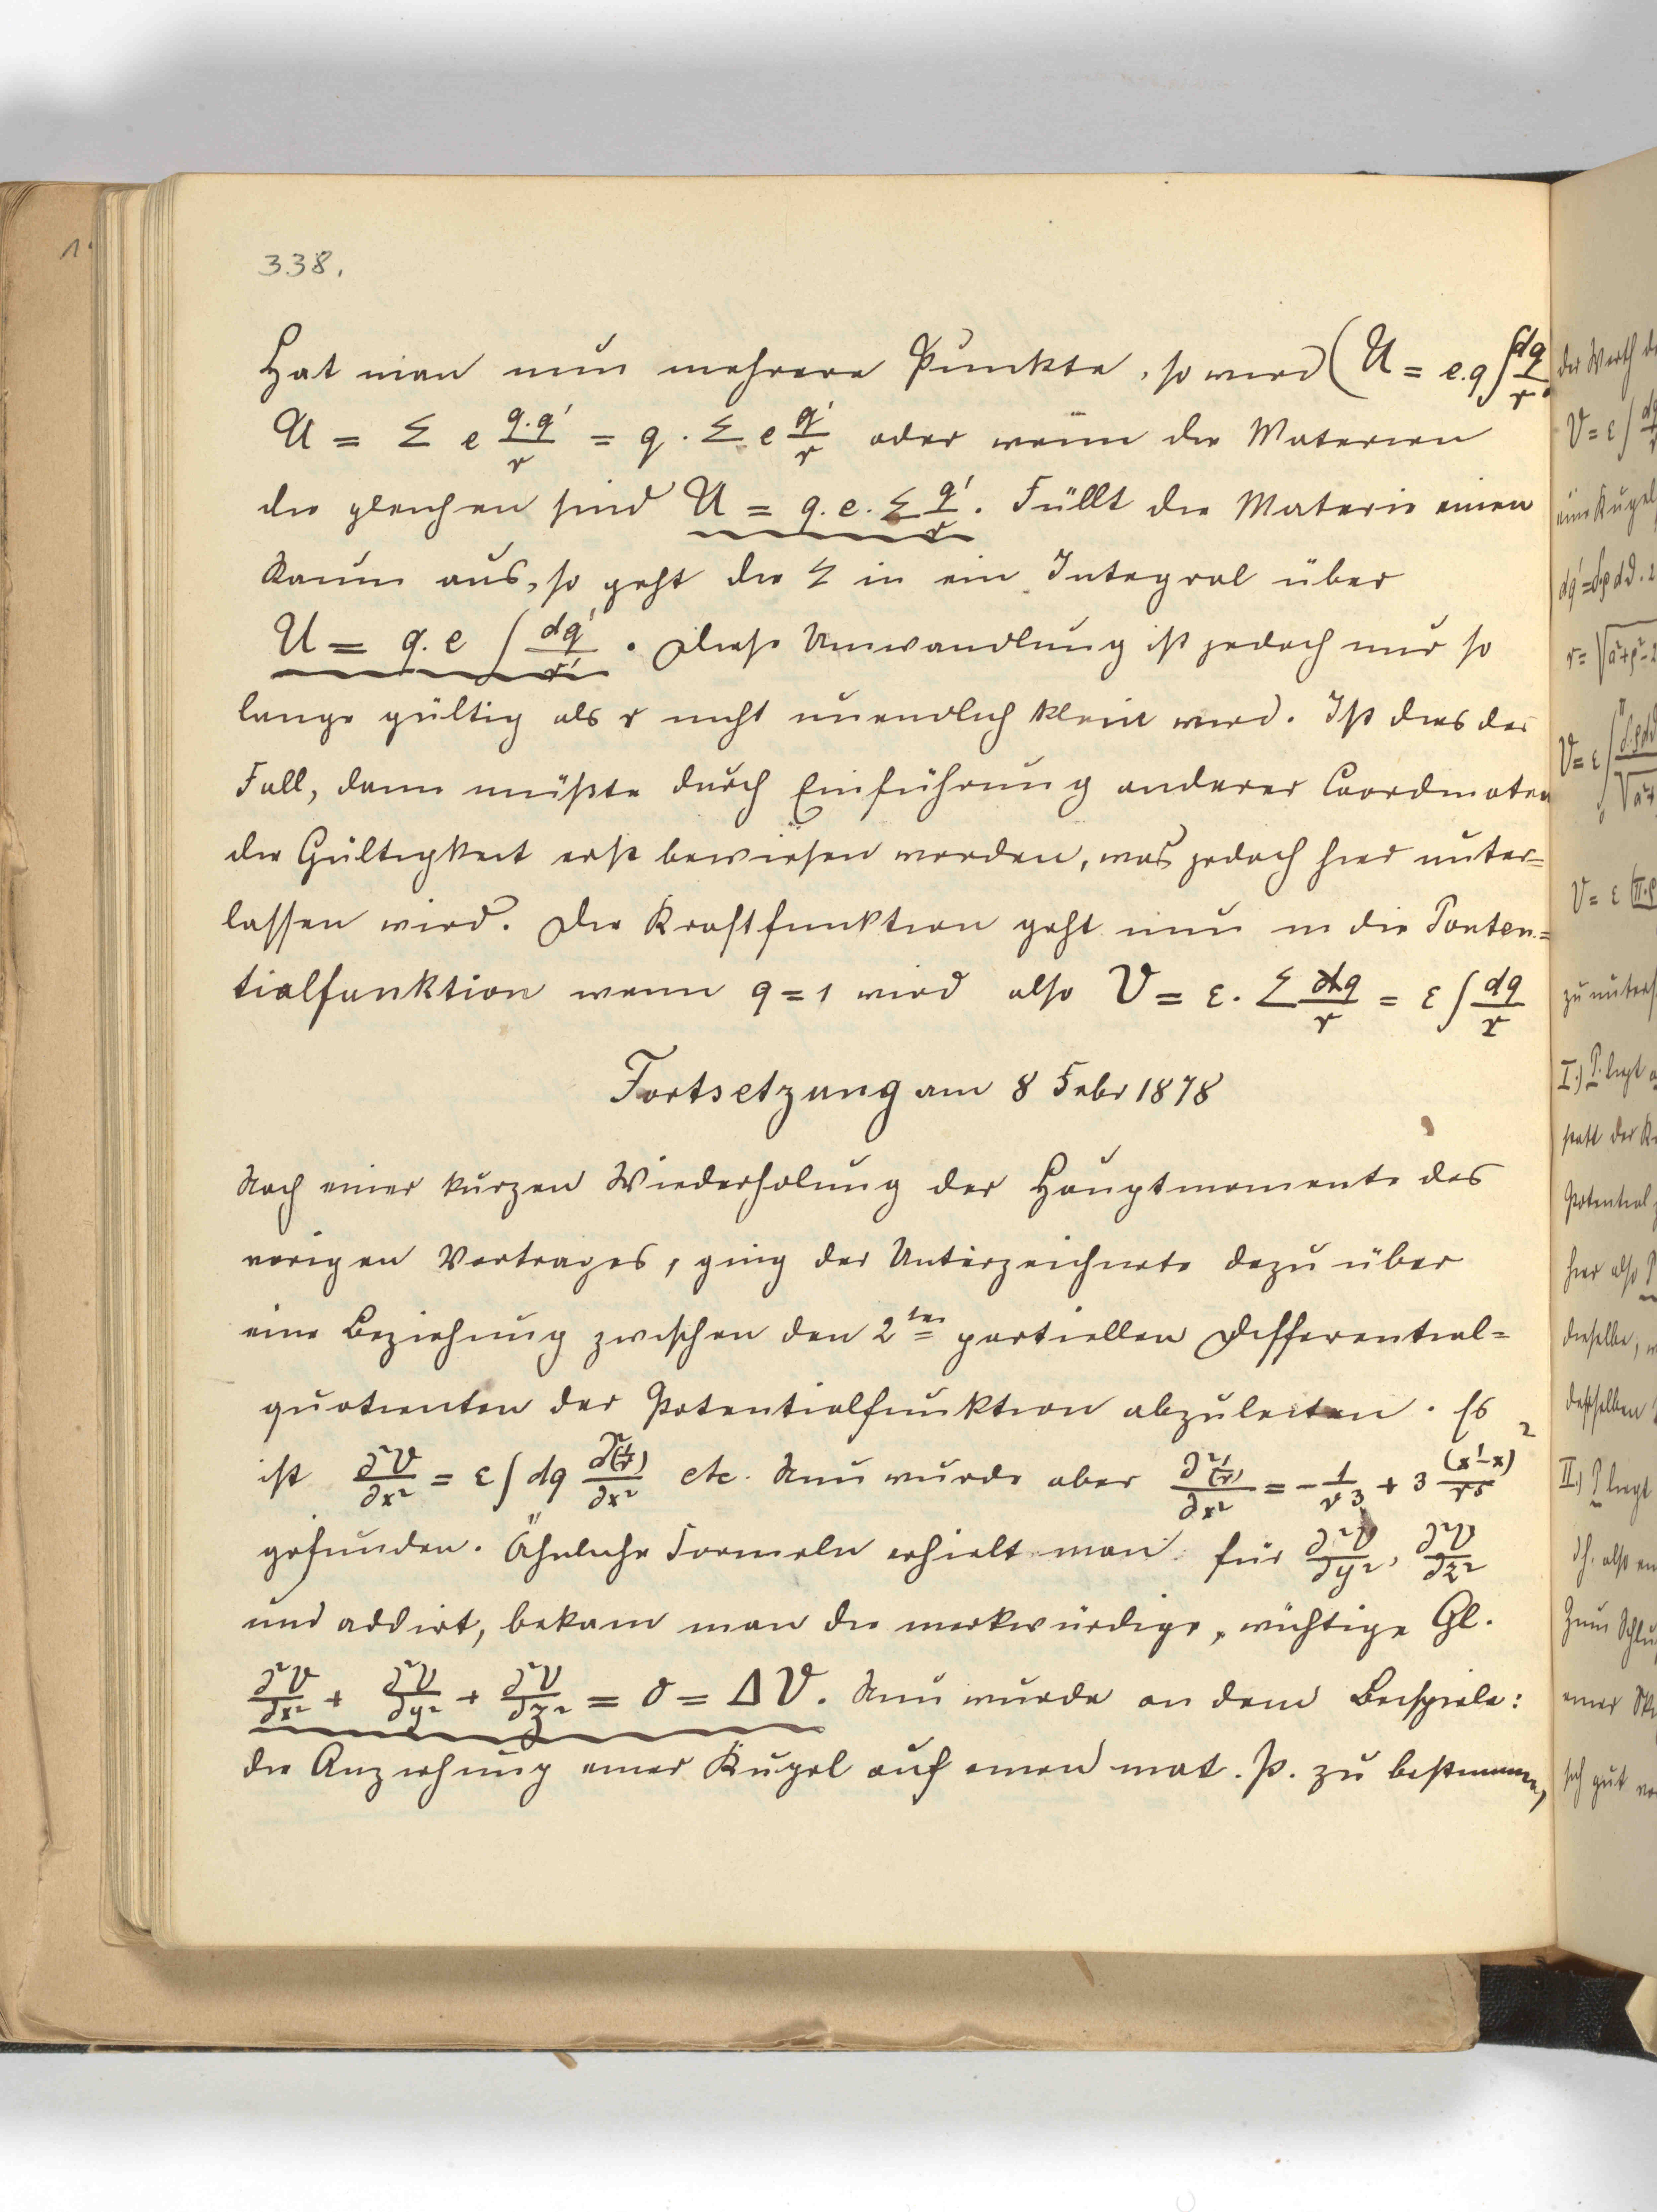 338.
Hat man nun mehrere Punkte, so wird (U = e.q ∫ dq/r.
U = Σ e q.q'/r = q . Σ e q'/r oder wenn die Materien
die gleichen sind U = q.e. Σ q'/r. Füllt die Materie einen
Raum aus, so geht die Σ in ein Integral über
U = q.e ∫ dq'/r'. Diese Umwandlung ist jedoch nur so
lange gültig als r nicht unendlich klein wird. Ist dies der
Fall, dann müßte durch Einführung anderer Coordinaten
die Gültigkeit erst bewiesen werden, was jedoch hier unter=
lassen wird. Die Kraftfunktion geht nun in die Ponten=
tialfunktion wenn q = 1 wird also V = ε. Σ dq/r = ε ∫ dq/r
Fortsetzung am 8 Febr 1878
Nach einer kurzen Wiederholung der Hauptmomente des
vorigen Vortrages, ging der Unterzeichnete dazu über
eine Beziehung zwischen den 2ten partiellen Differential=
quotienten der Potentialfunktion abzuleiten. Es
ist ∂²V/∂x² = ε ∫ dq ∂²(1/r)/∂x² etc. Nun wurde aber ∂²(1/r)/∂x² = - 1/r3 + 3 (x'-x)²/r5
gefunden. Ähnliche Formeln erhielt man für ∂²V/∂y², ∂²V/∂z²
und addirt, bekam man die merkwürdige, wichtige Gl.
∂²V/∂x² + ∂²V/∂y² + ∂²V/∂z² = 0 = ΔV. Nun wurde an dem Beispiele:
die Anziehung einer Kugel auf einen mat. P. zu bestimmen,
der Werth
V = ε ∫
eine Kugel
r = √a²+ρ²-2
V = ε ∫
V = ε
zu unters
I.) P. liegt
statt der
Potential
hier also P
dieselbe,
desselben
II.) P liegt
dh. also
Zum Schlu
einer
sich gut